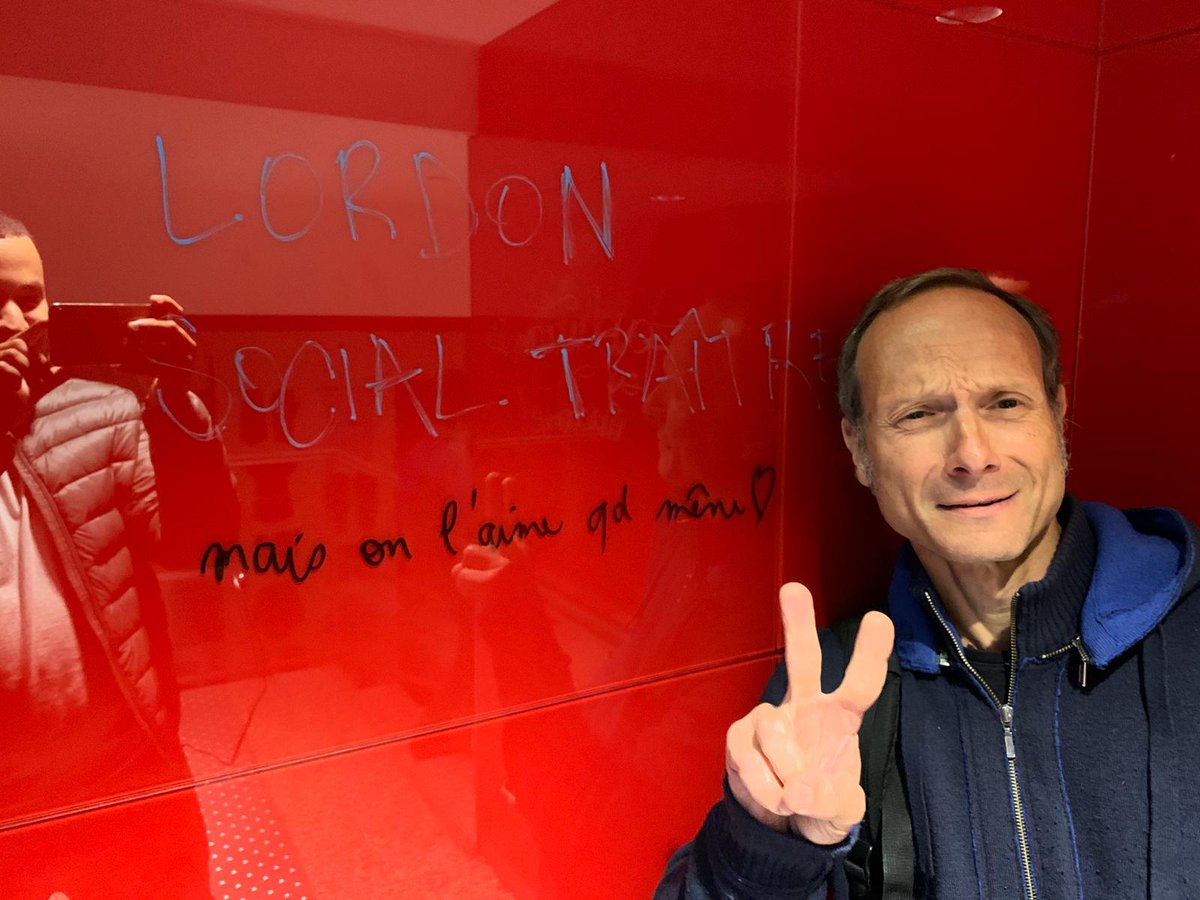 LORDON
SOCIAL. TRAÎTRE
mais on l'aime qd même ♡